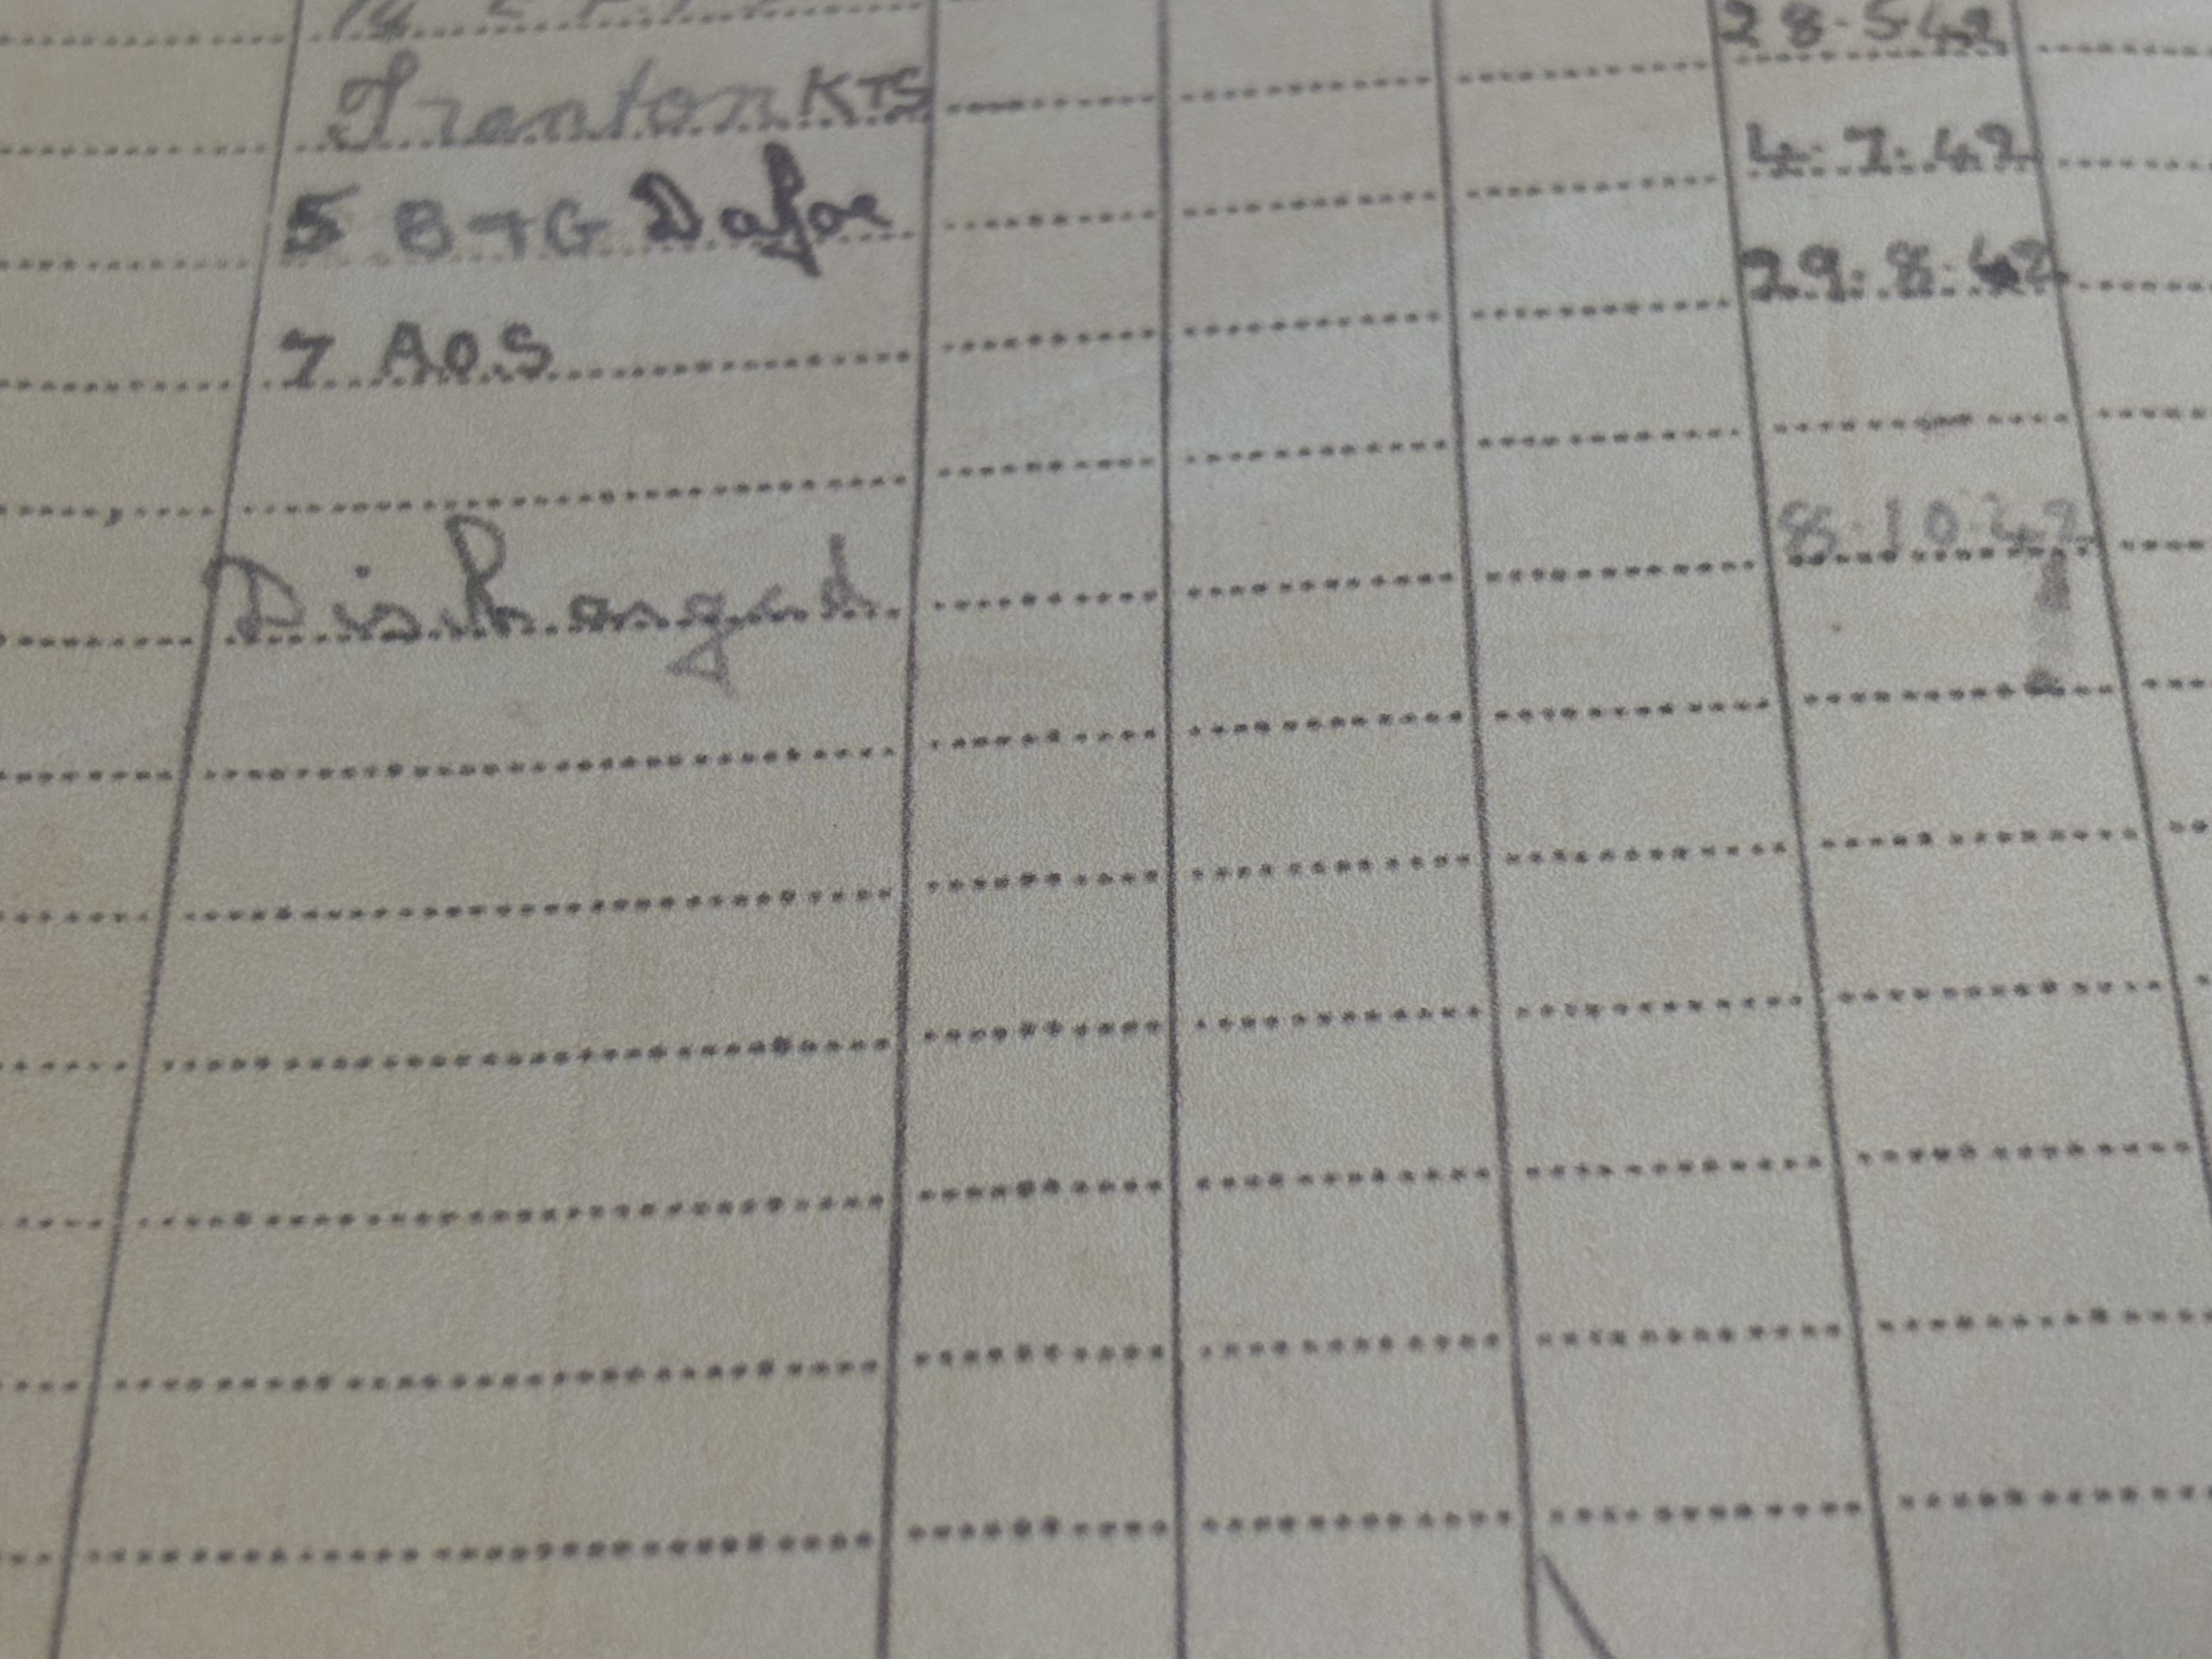 28.5.42
Trenton KTS
4.7.42
5 B+G Dafoe
29.8.42
7 A.O.S
8.10.42
Discharged